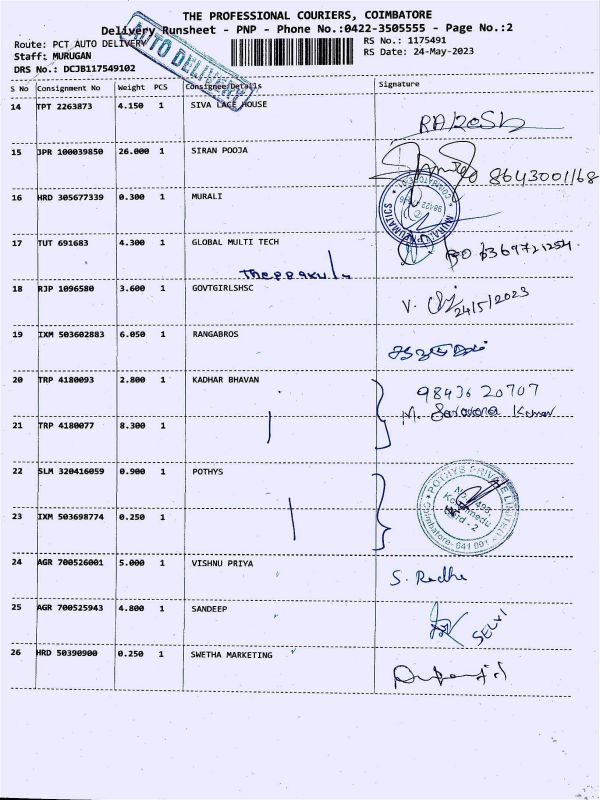 THE PROFESSIONAL COURIERS, COIMBATORE
Delivery Runsheet - PNP - Phone No.:0422-3505555 - Page No.:2
Route: PCT AUTO DELIVERY
RS No.: 1175491
Staff: MURUGAN
RS Date: 24-May-2023
DRS No.: DCJB117549102
AUTO DELIVERY
S No Consignment No Weight PCS Consignee Details Signature
14 TPT 2263873 4.150 1 SIVA LACE HOUSE
15 JPR 100039850 26.000 1 SIRAN POOJA 8643001168
16 HRD 305677339 0.300 1 MURALI
17 TUT 691683 4.300 1 GLOBAL MULTI TECH
18 RJP 1096580 3.600 1 GOVTGIRLSHSC V. 24/5/2023
19 IXM 503602883 6.050 1 RANGABROS
20 TRP 4180093 2.800 1 KADHAR BHAVAN 9843620707
M. Saravana Kumar
21 TRP 4180077 8.300 1
22 SLM 320416059 0.900 1 POTHYS
POTHYS PRIVATE LIMITED
Coimbatore- 641 001
23 IXM 503698774 0.250 1
24 AGR 700526001 5.000 1 VISHNU PRIYA S. Radha
25 AGR 700525943 4.800 1 SANDEEP SELVI
26 HRD 50390900 0.250 1 SWETHA MARKETING